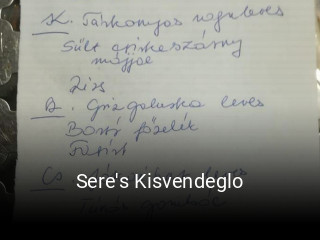 K. Tárkonyos raguleves
Sült csirkeszárny
májjal
Rizs
B. Grízgaluska leves
Borsó főzelék
Fasírt
Cs.
Sere's Kisvendeglo